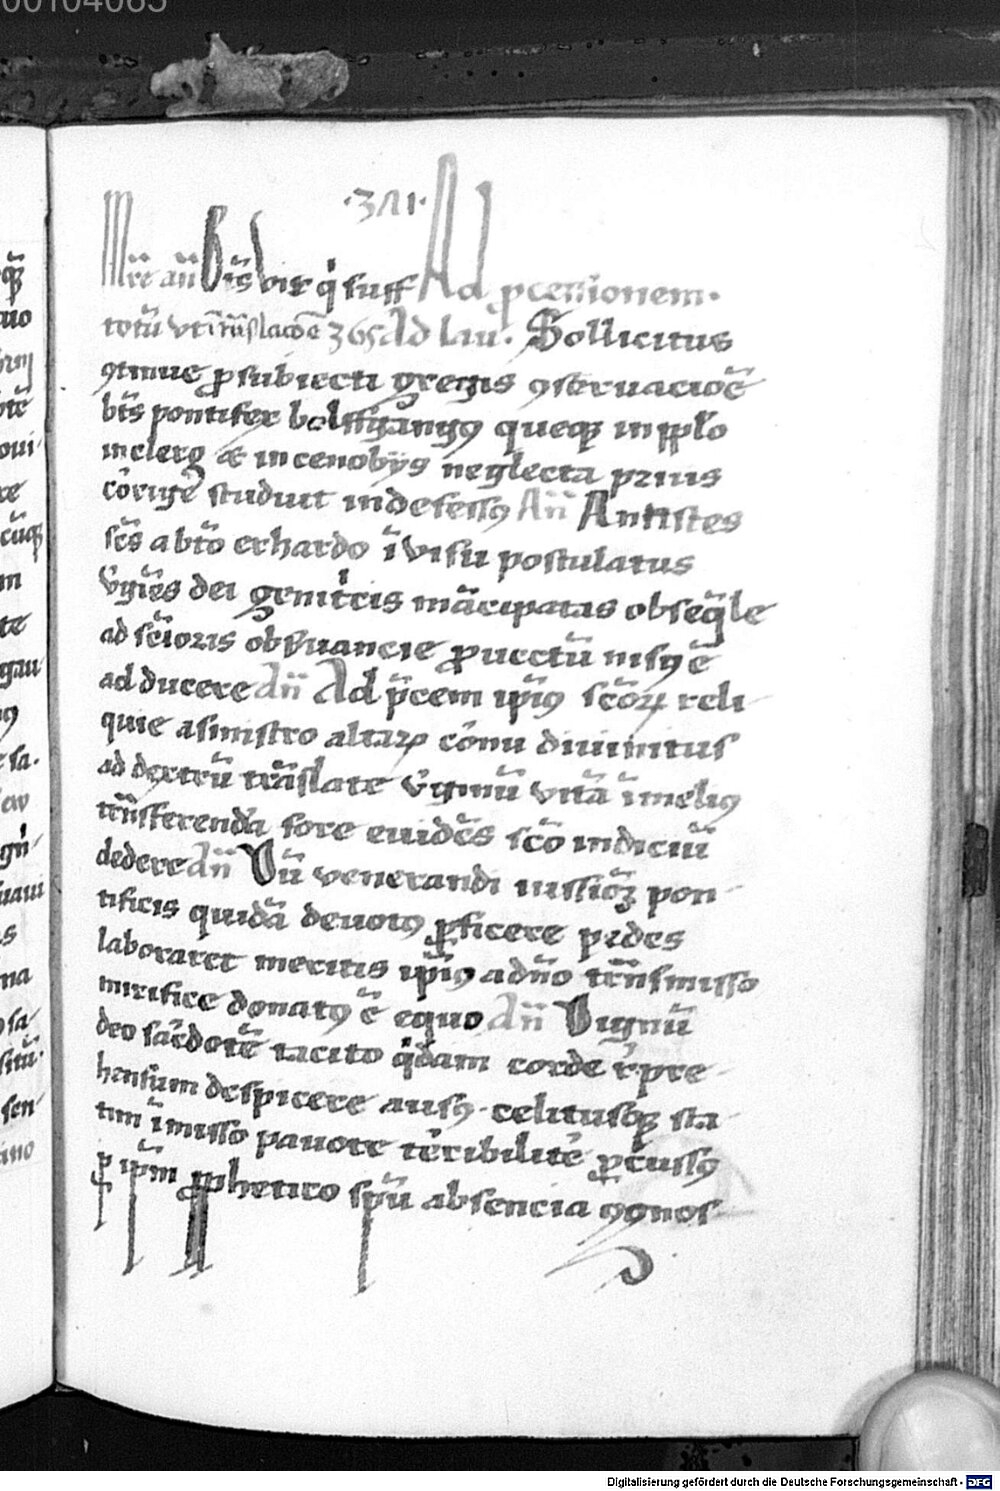 00104085
·321·
Mr̄e añ Bt̄s vir q̇ suff Ad ꝓcessionem·
totū vt ī trāslacōe 365 Ad lau̅· Sollicitus
ꝯtinue ꝓ subiecti gregis ꝯseruacioē
bt̄s pontifex bolffgangꝯ queqꝫ in ppl̄o
in clero ac in cenobijs neglecta prius
cōrige̅ studuit indefessꝯ Añ Antistes
sc̄s a bt̄o erhardo ī visu postulatus
v̄gīs dei genit̄cis mācipatas obseq̄le
ad sc̄ioris obẜuancie ꝓuectū nisꝯ ē
ad ducere Añ Ad p̄cem ip̄iꝯ sc̄oꝝ reli-
quie a sinistro altaꝝ cōnu diuinitus
ad dextrū trāslate v̄ginū vitā ī melius
trānsferendā fore euidēs sc̄o indiciū
dedere Añ Dū venerandi iussioꝫ pon-
tificis quidā deuotꝯ ꝓficere pedes
laboraret meritis ip̄iꝯ adūo trānsmisso
mirifice donatꝯ ē equo Añ Dignū
deo sācdotē tacito q̇dam corde r̄pre-
hensum despicere ausꝯ· celitusqꝫ sta-
tim īmisso pauore tēribilitē ꝓcussꝯ
ꝑ ip̄m ꝓphetico sp̄u absencia ꝯgnos-
Digitalisierung gefördert durch die Deutsche Forschungsgemeinschaft - DFG